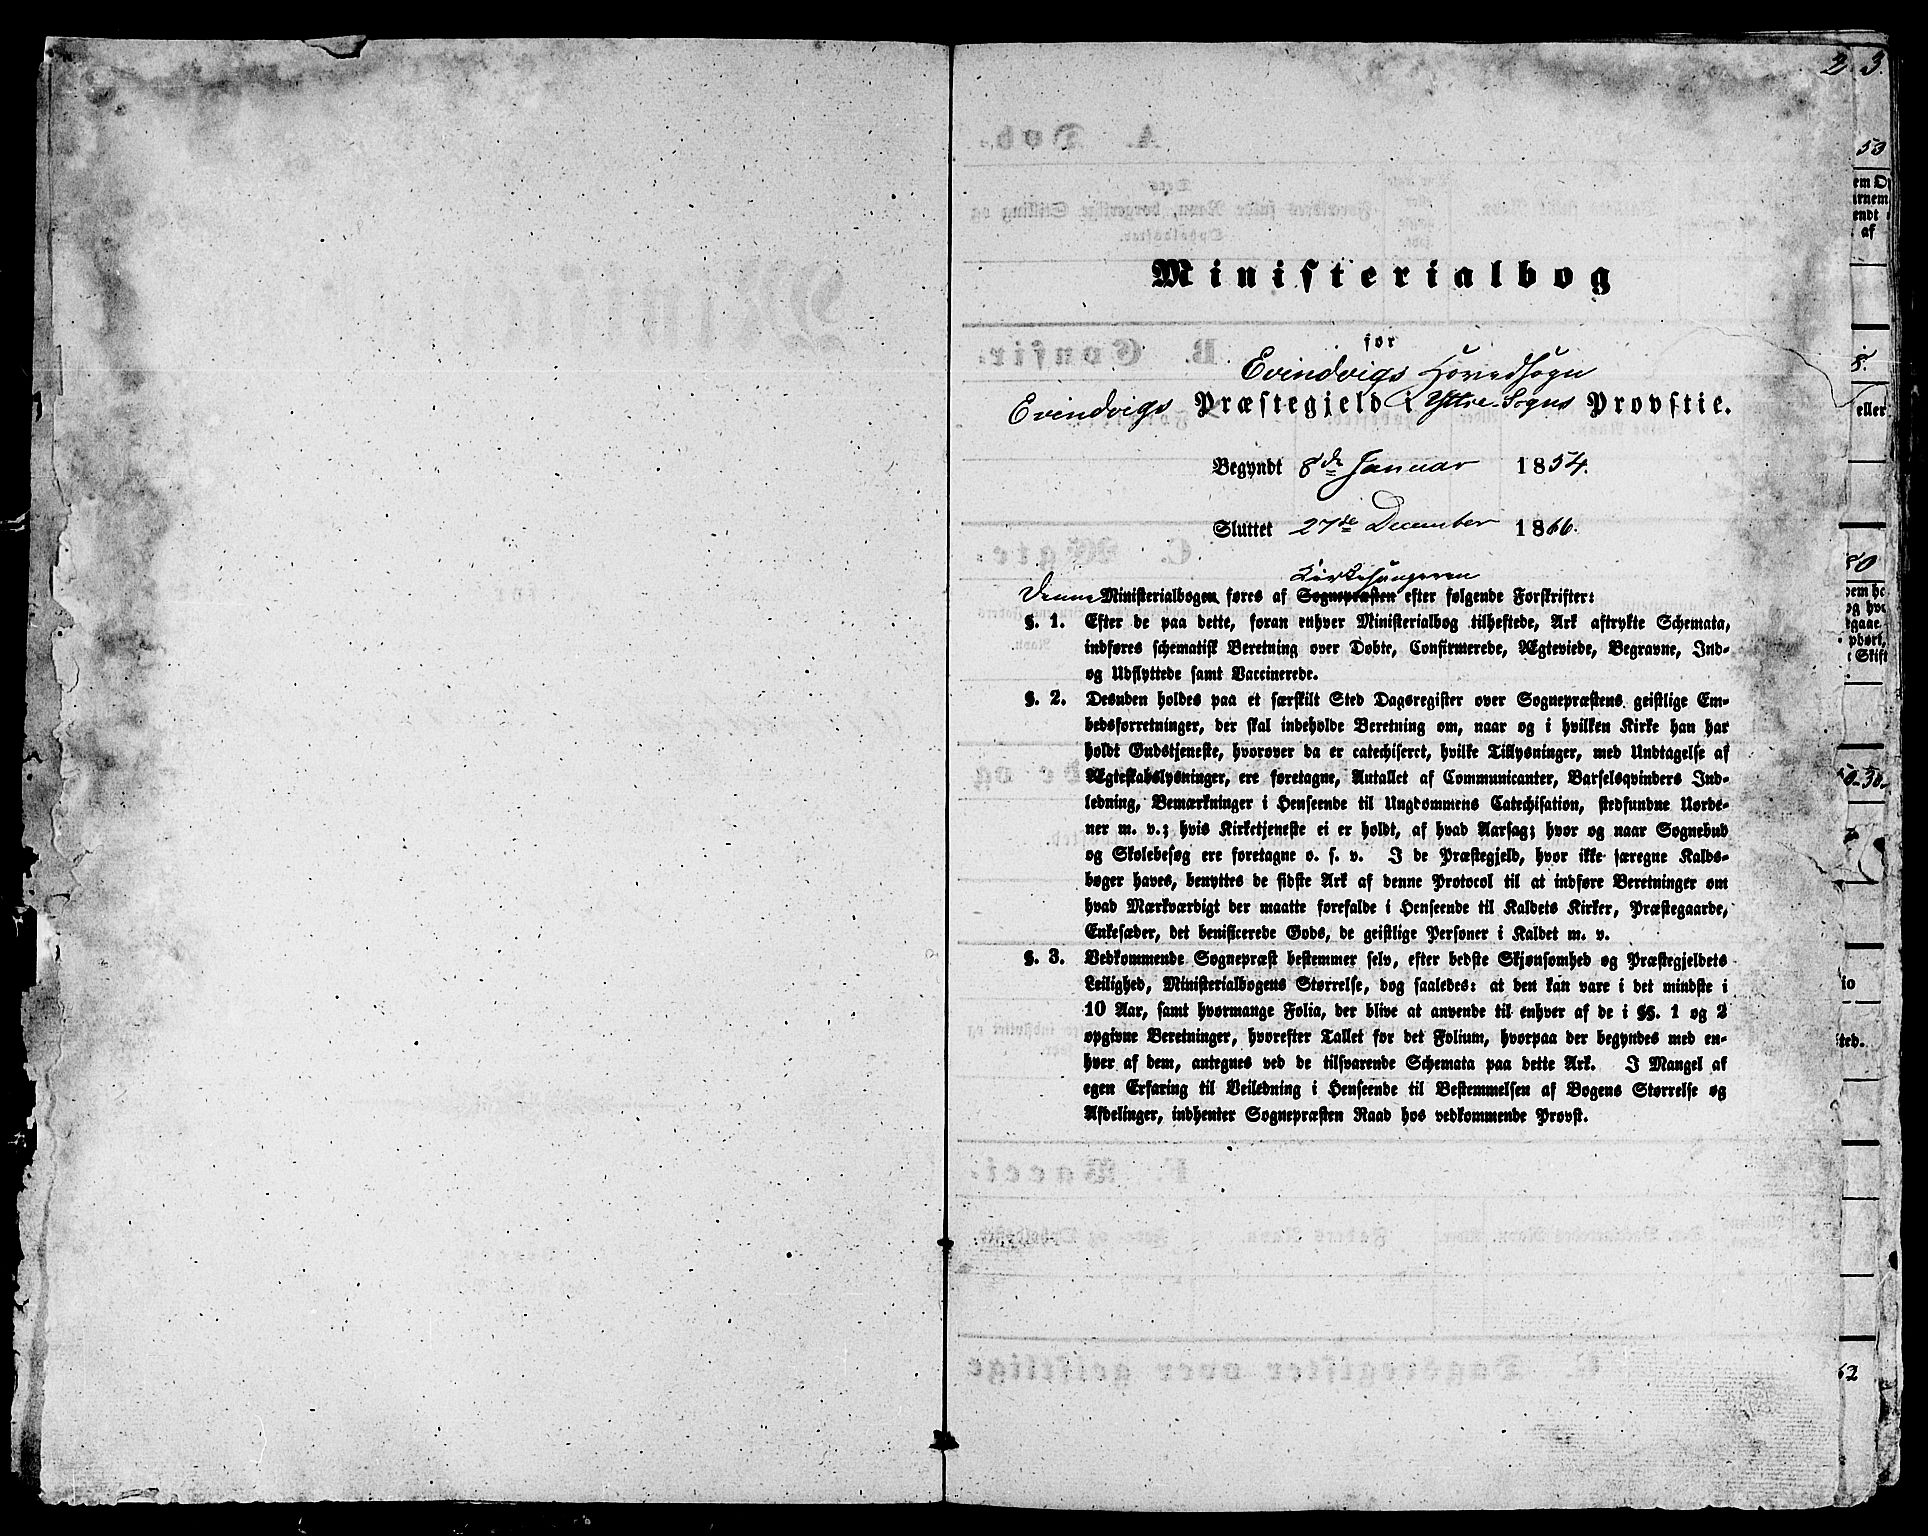 2 3.
Ministerialbog
for
Evindvigs Hovedsogn
Evindvigs Præstegjeld i Yttre-Sogns Provstie.
Begyndt 8de Januar 1854.
Sluttet 27de December 1866.
Kirkesangeren
Denne Ministerialbogen føres af Sognepræsten efter følgende Forskrifter:
§. 1. Efter de paa dette, foran enhver Ministerialbog tilheftede, Ark aftrykte Schemata,
indføres schematisk Beretning over Døbte, Confirmerede, Ægteviede, Begravne, Ind-
og Udflyttede samt Vaccinerede.
§. 2. Desuden holdes paa et særskilt Sted Dagsregister over Sognepræstens geistlige Em-
bedsforretninger, der skal indeholde Beretning om, naar og i hvilken Kirke han har
holdt Gudstjeneste, hvorover da er catechiseret, hvilke Tillysninger, med Undtagelse af
Ægteskabslysninger, ere foretagne, Antallet af Communicanter, Barselqvinders Ind-
ledning, Bemærkninger i Henseende til Ungdommens Catechisation, stedfundne Uorde-
ner m. v.; hvis Kirketjeneste ei er holdt, af hvad Aarsag; hvor og naar Sognebud
og Skolebesøg ere foretagne o. s. v. I de Præstegjeld, hvor ikke særegne Kalds-
bøger haves, benyttes de sidste Ark af denne Protocol til at indføre Beretninger om
hvad Mærkværdigt der maatte forefalde i Henseende til Kaldets Kirker, Præstegaarde,
Enkesæder, det benificerede Gods, de geistlige Personer i Kaldet m. v.
§. 3. Vedkommende Sognepræst bestemmer selv, efter bedste Skjønsomhed og Præstegjeldets
Leilighed, Ministerialbogens Størrelse, dog saaledes: at den kan vare i det mindste i
10 Aar, samt hvormange Folia, der blive at anvende til enhver af de i §§. 1 og 2
opgivne Beretninger, hvorefter Tallet for det Folium, hvorpaa der begyndes med en-
hver af dem, antegnes ved de tilsvarende Schemata paa dette Ark. I Mangel af
egen Erfaring til Veiledning i Henseende til Bestemmelsen af Bogens Størrelse og
Afdelinger, indhenter Sognepræsten Raad hos vedkommende Provst.